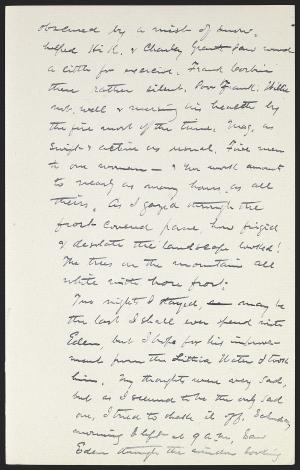 obscured by a mist of snow.
helped H. & Charley Grant saw wood
a little for exercise. Frank Corbin
there rather silent. Poor Frank. Willie
not well & nursing his health by
the fire most of the time. Mag, as
swift & active as usual. Five men
to one woman — & her work amounts
to nearly as many hours as all
theirs. As I gazed through the
frost covered pane, how frigid
& desolate the landscape looked!
The trees on the mountain all
white with hoar frost.
This night I stayed, may be
the last I shall ever spend with
Eden, but I hope for his improve-
ments from the Lithia Water I took
him. My thoughts were very sad,
but as I seemed to be the only sad
one, I tried to shake it off. Saturday
morning I left at 9 a.m., saw
Eden through the window looking